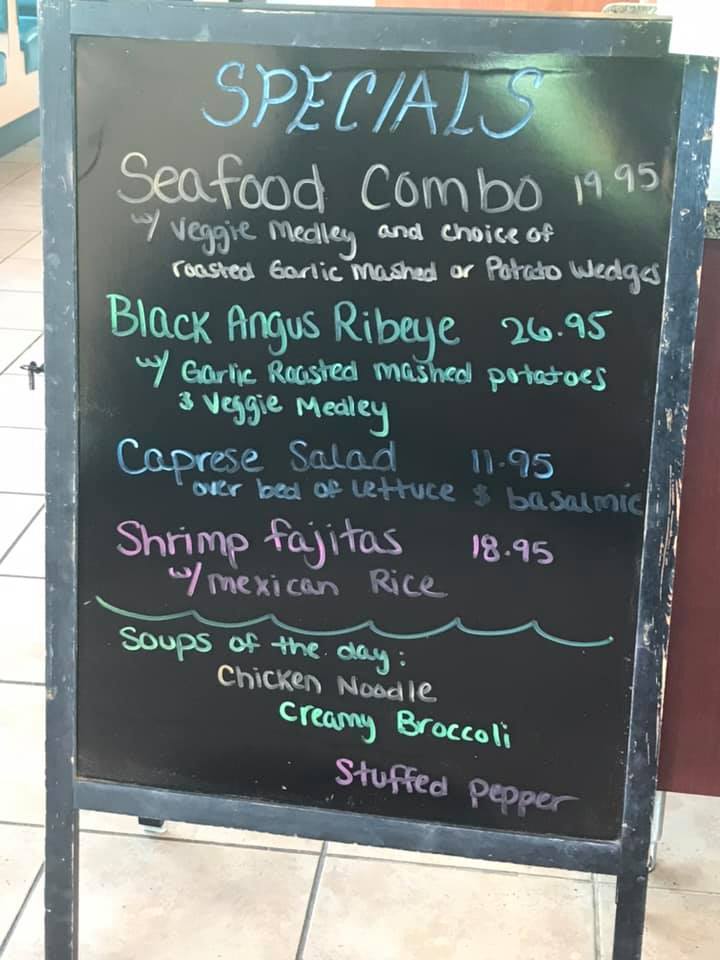 SPECIALS
Seafood Combo 19.95
w/ Veggie Medley and choice of
roasted Garlic Mashed or Potato Wedges
Black Angus Ribeye 26.95
w/ Garlic Roasted mashed potatoes
& Veggie Medley
Caprese Salad 11.95
over bed of Lettuce & basalmic
Shrimp fajitas 18.95
w/ mexican Rice
Soups of the day:
Chicken Noodle
Creamy Broccoli
Stuffed Pepper